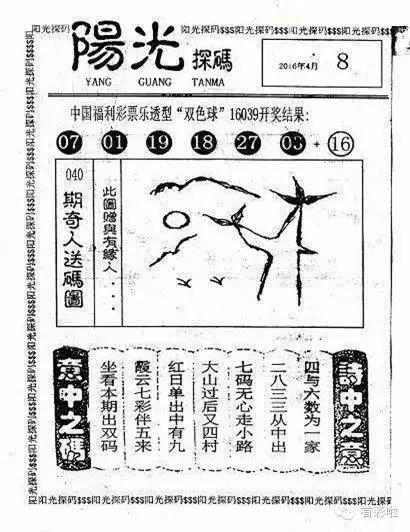 阳光探码$$$阳光探码$$$阳光探码$$$阳光探码$$$阳光探码$$$阳光探码
陽光探碼
YANG GUANG TANMA
2016年4月 8
中国福利彩票乐透型“双色球”16039开奖结果:
07 01 19 18 27 03 + 16
040
期奇人送碼圖
此圖贈與有緣人....
詩中之意
四与六数为一家
二八三三从中出
七码无心走小路
大山过后又四村
红日单出中有九
霞云七彩伴五来
坐看本期出双码
意中之碼
阳光探码$$$阳光探码$$$阳光探码$$$阳光探码$$$阳光探码$$$阳光探码
看彩啦